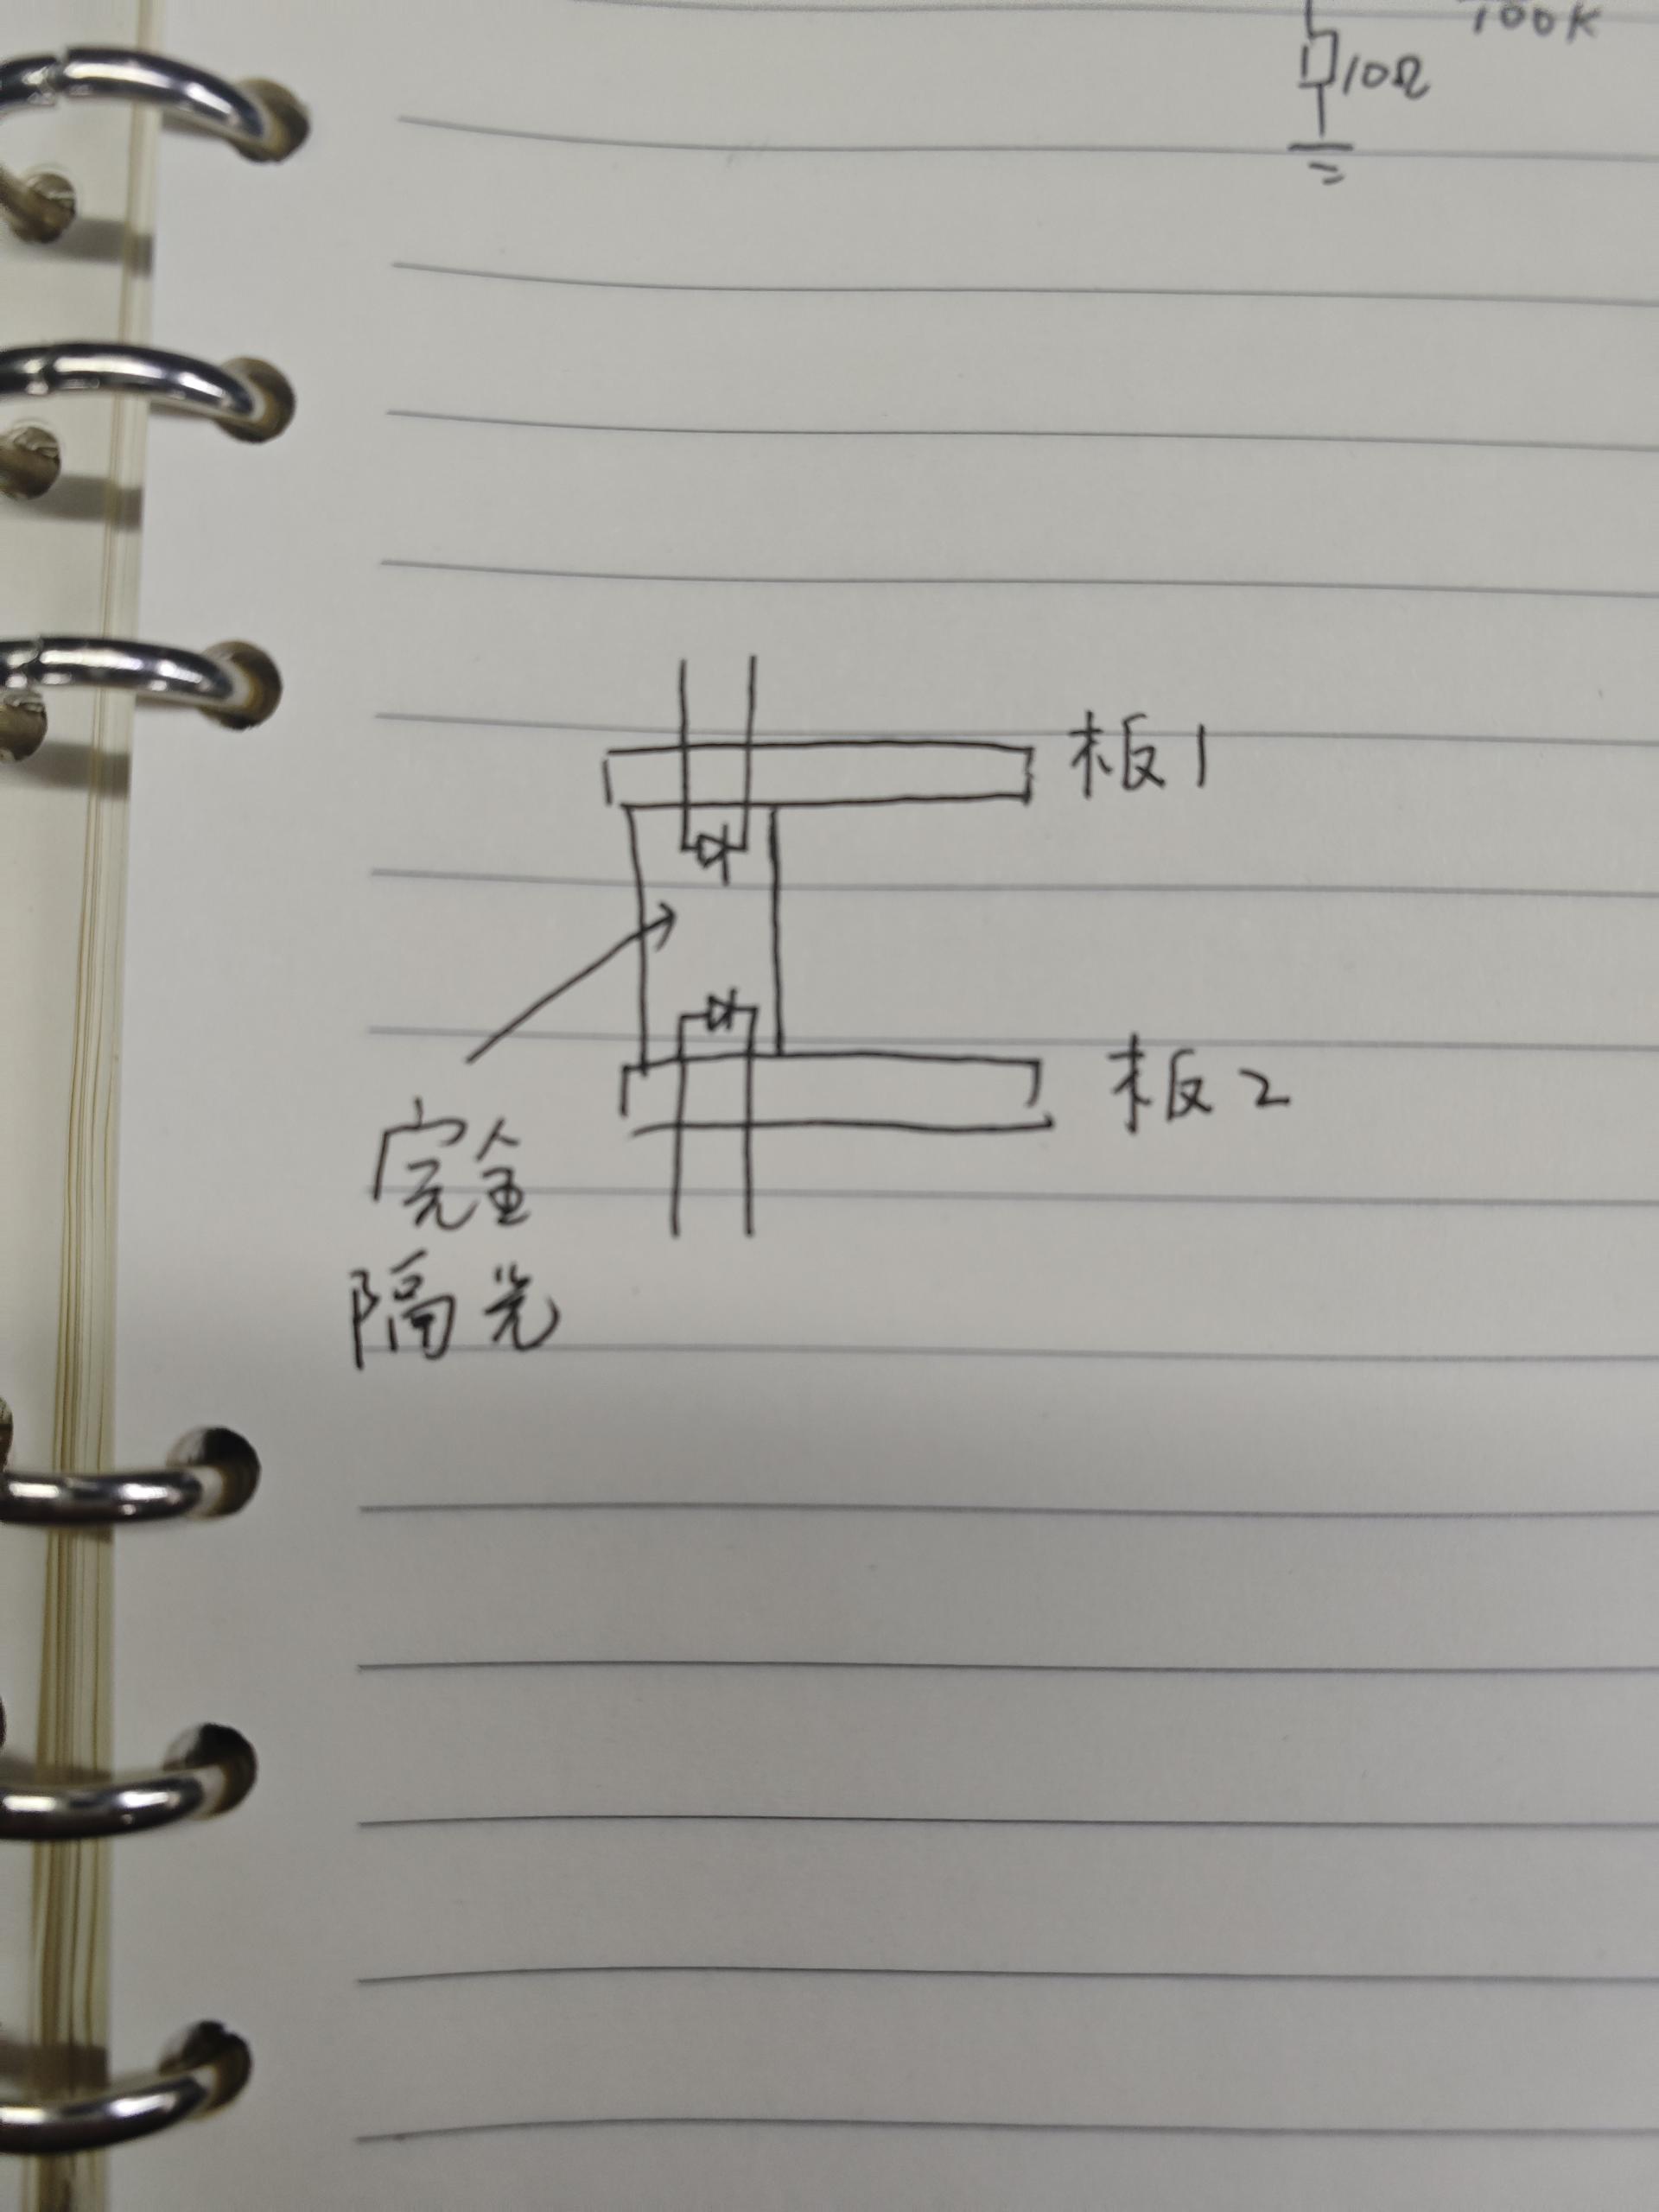 100K
10Ω
板1
板2
完全
隔光